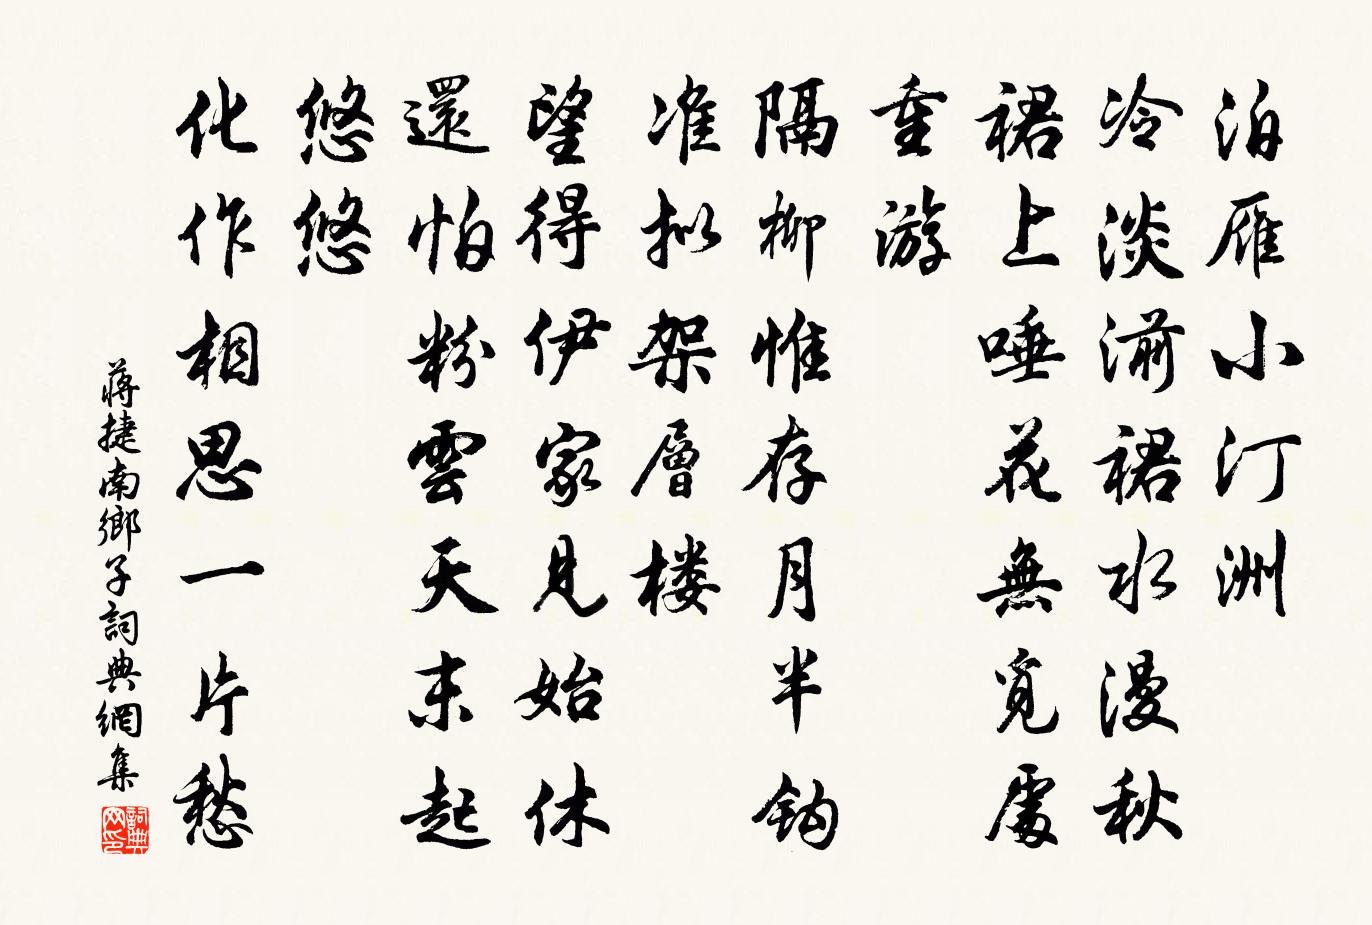 泊雁小汀洲
冷淡湔裙水漫秋
裙上唾花無覓處
重游
隔柳惟存月半鈎
准拟架層楼
望得伊家見始休
還怕粉雲天末起
悠悠
化作相思一片愁
蔣捷南鄉子詞典網集
詞典网印